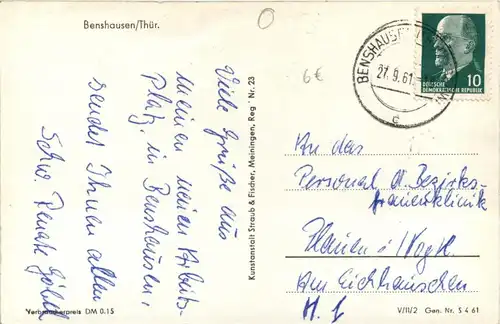 Benshausen/Thür.
Viele Grüße aus
meinen neuen Arbeits-
platz, in Benshausen,
sendet Ihnen allen
Schw. Renate
Kunstanstalt Straub & Fischer, Meiningen, Reg. Nr. 23
Verbraucherpreis DM 0.15
6€
BENSHAUSEN
27.9.61
c
10
DEUTSCHE
DEMOKRATISCHE REPUBLIK
An das
Personal d. Bezirks-
frauenklinik
Plauen i/Vogtl.
Am Eichhäuschen
V/11/2 Gen. Nr. S 4 61